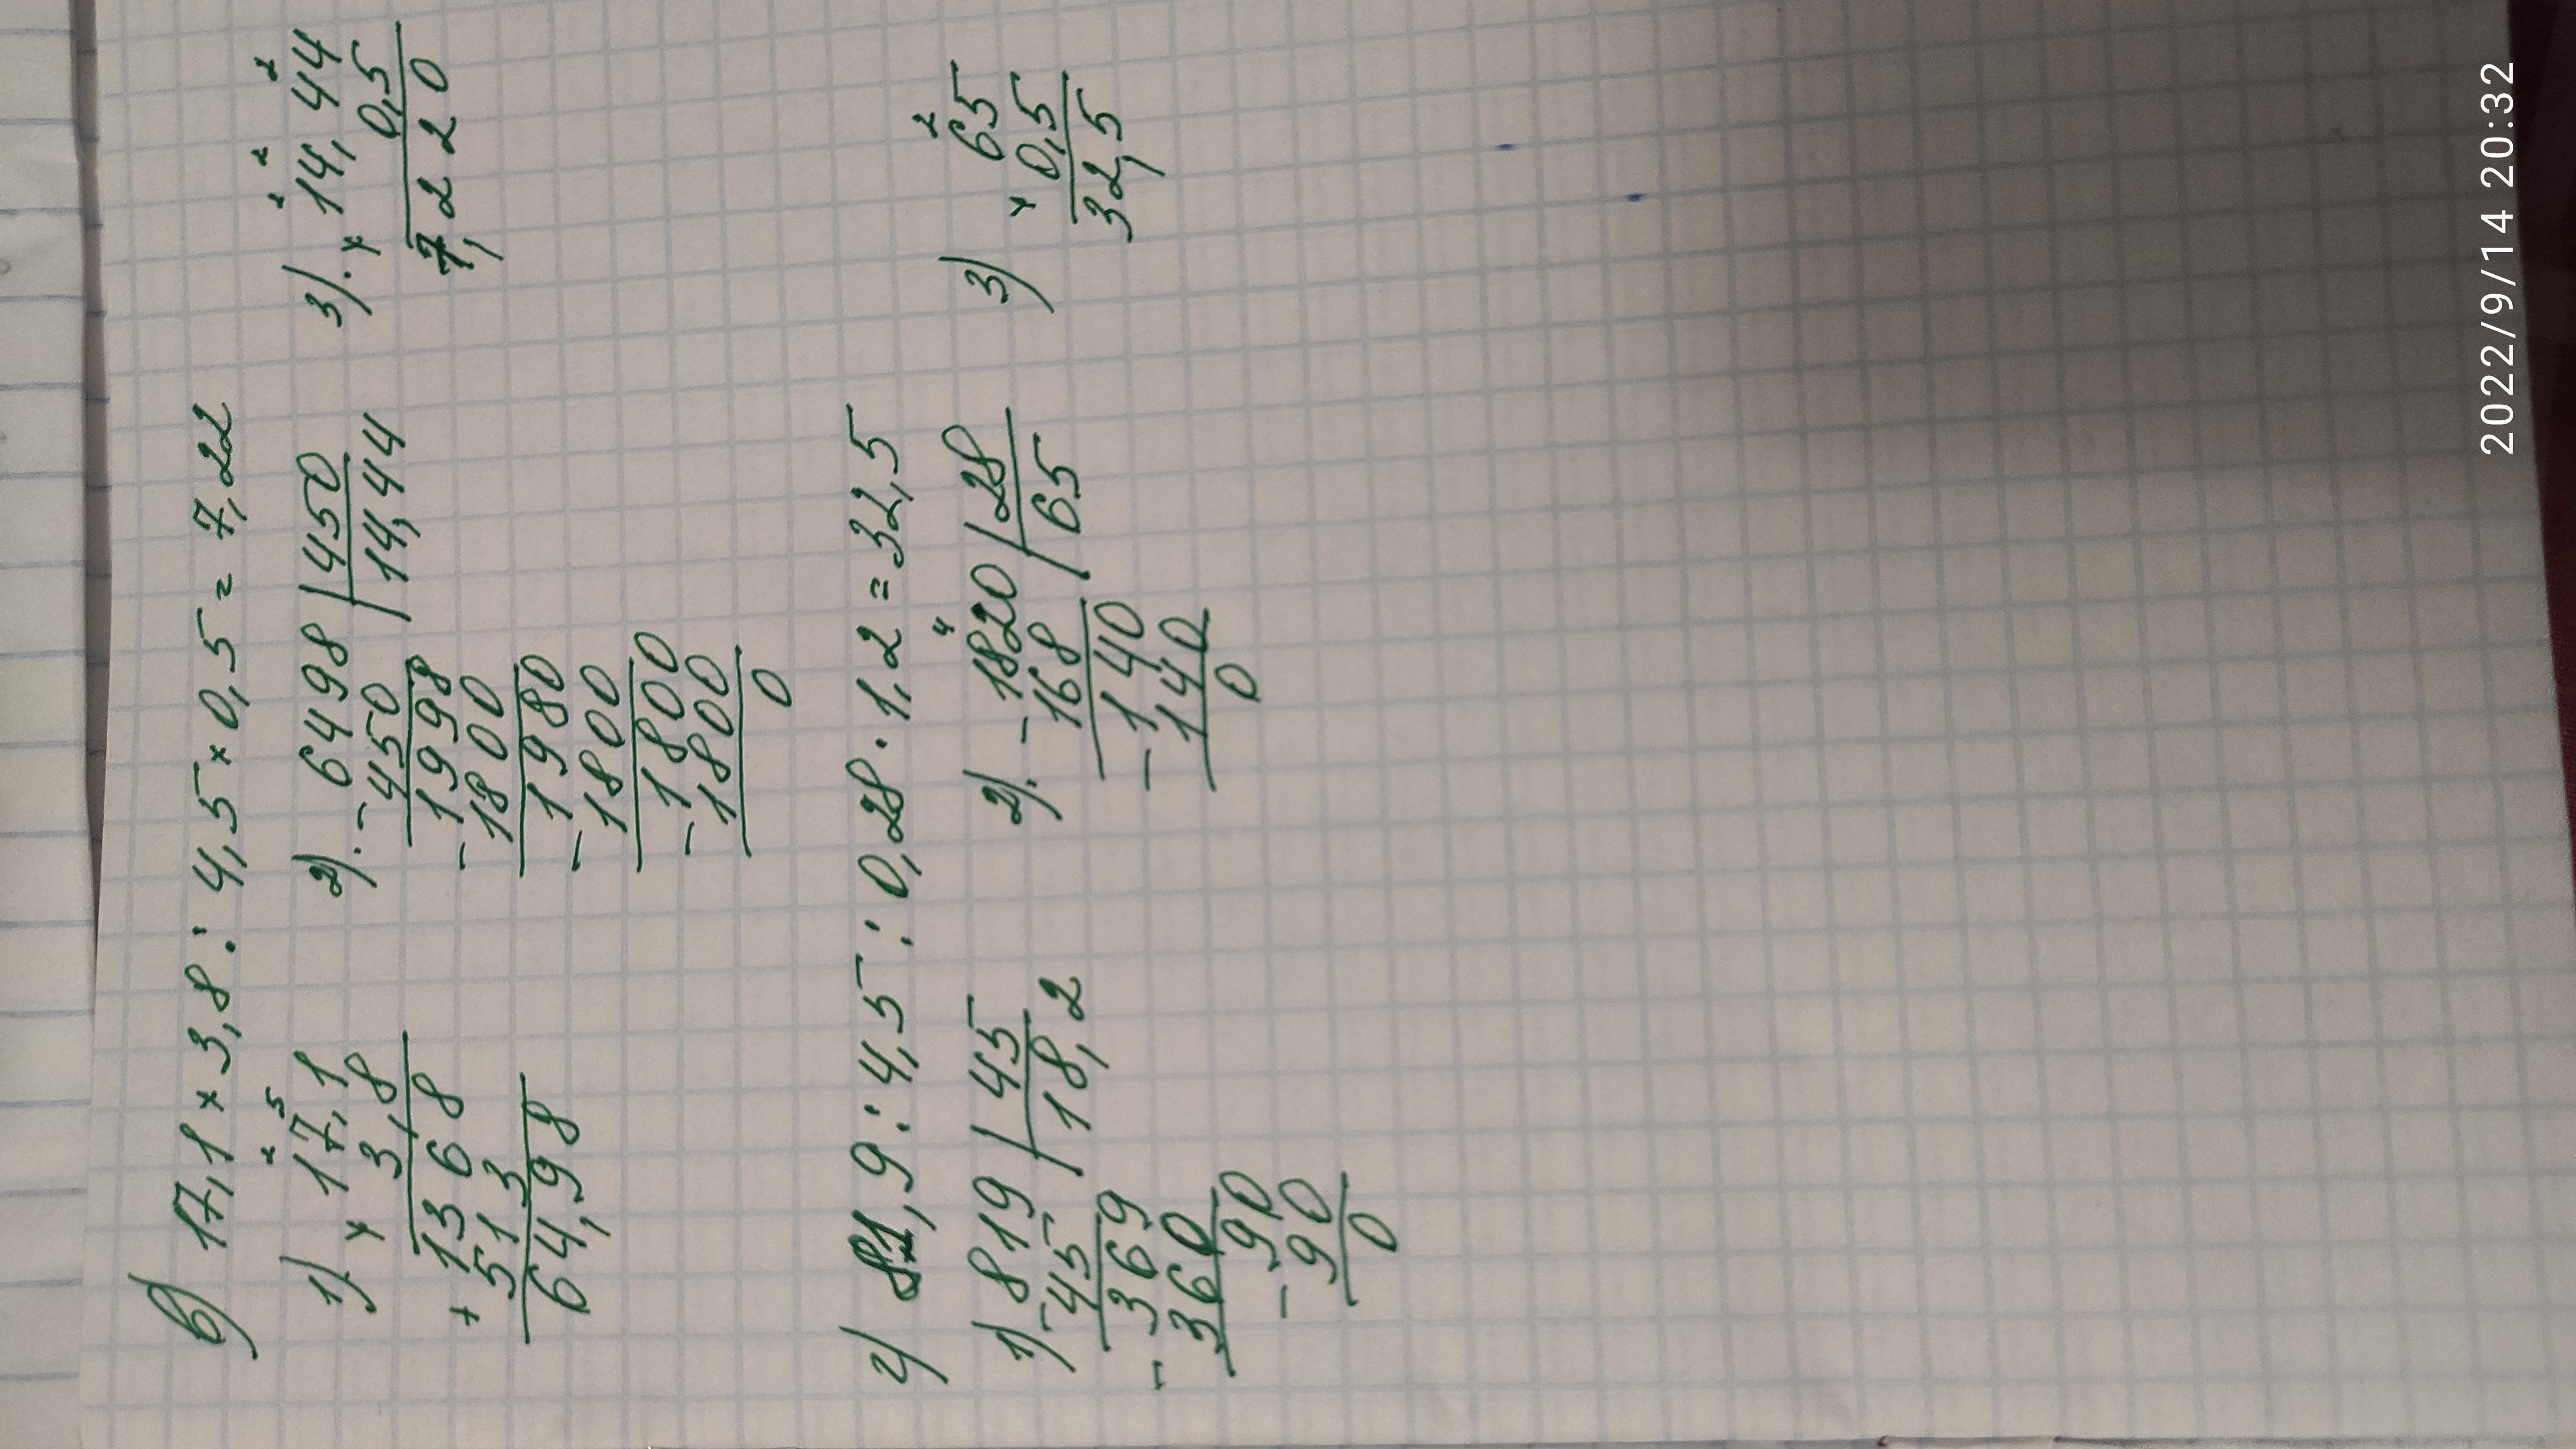 в) 17,1 × 3,8 : 4,5 × 0,5 = 7,22
1) 17,1
× 3,8
1368
+ 513
64,98
2). 6498 | 450
- 450 | 14,44
1998
- 1800
1980
- 1800
1800
- 1800
0
3). 14,44
× 0,5
7,220
г) 81,9 : 4,5 : 0,28 · 1,2 = 32,5
1) 819 | 45
- 45 | 18,2
369
- 360
90
- 90
0
2). - 1820 | 28
168 | 65
- 140
140
0
3) 65
× 0,5
32,5
2022/9/14 20:32